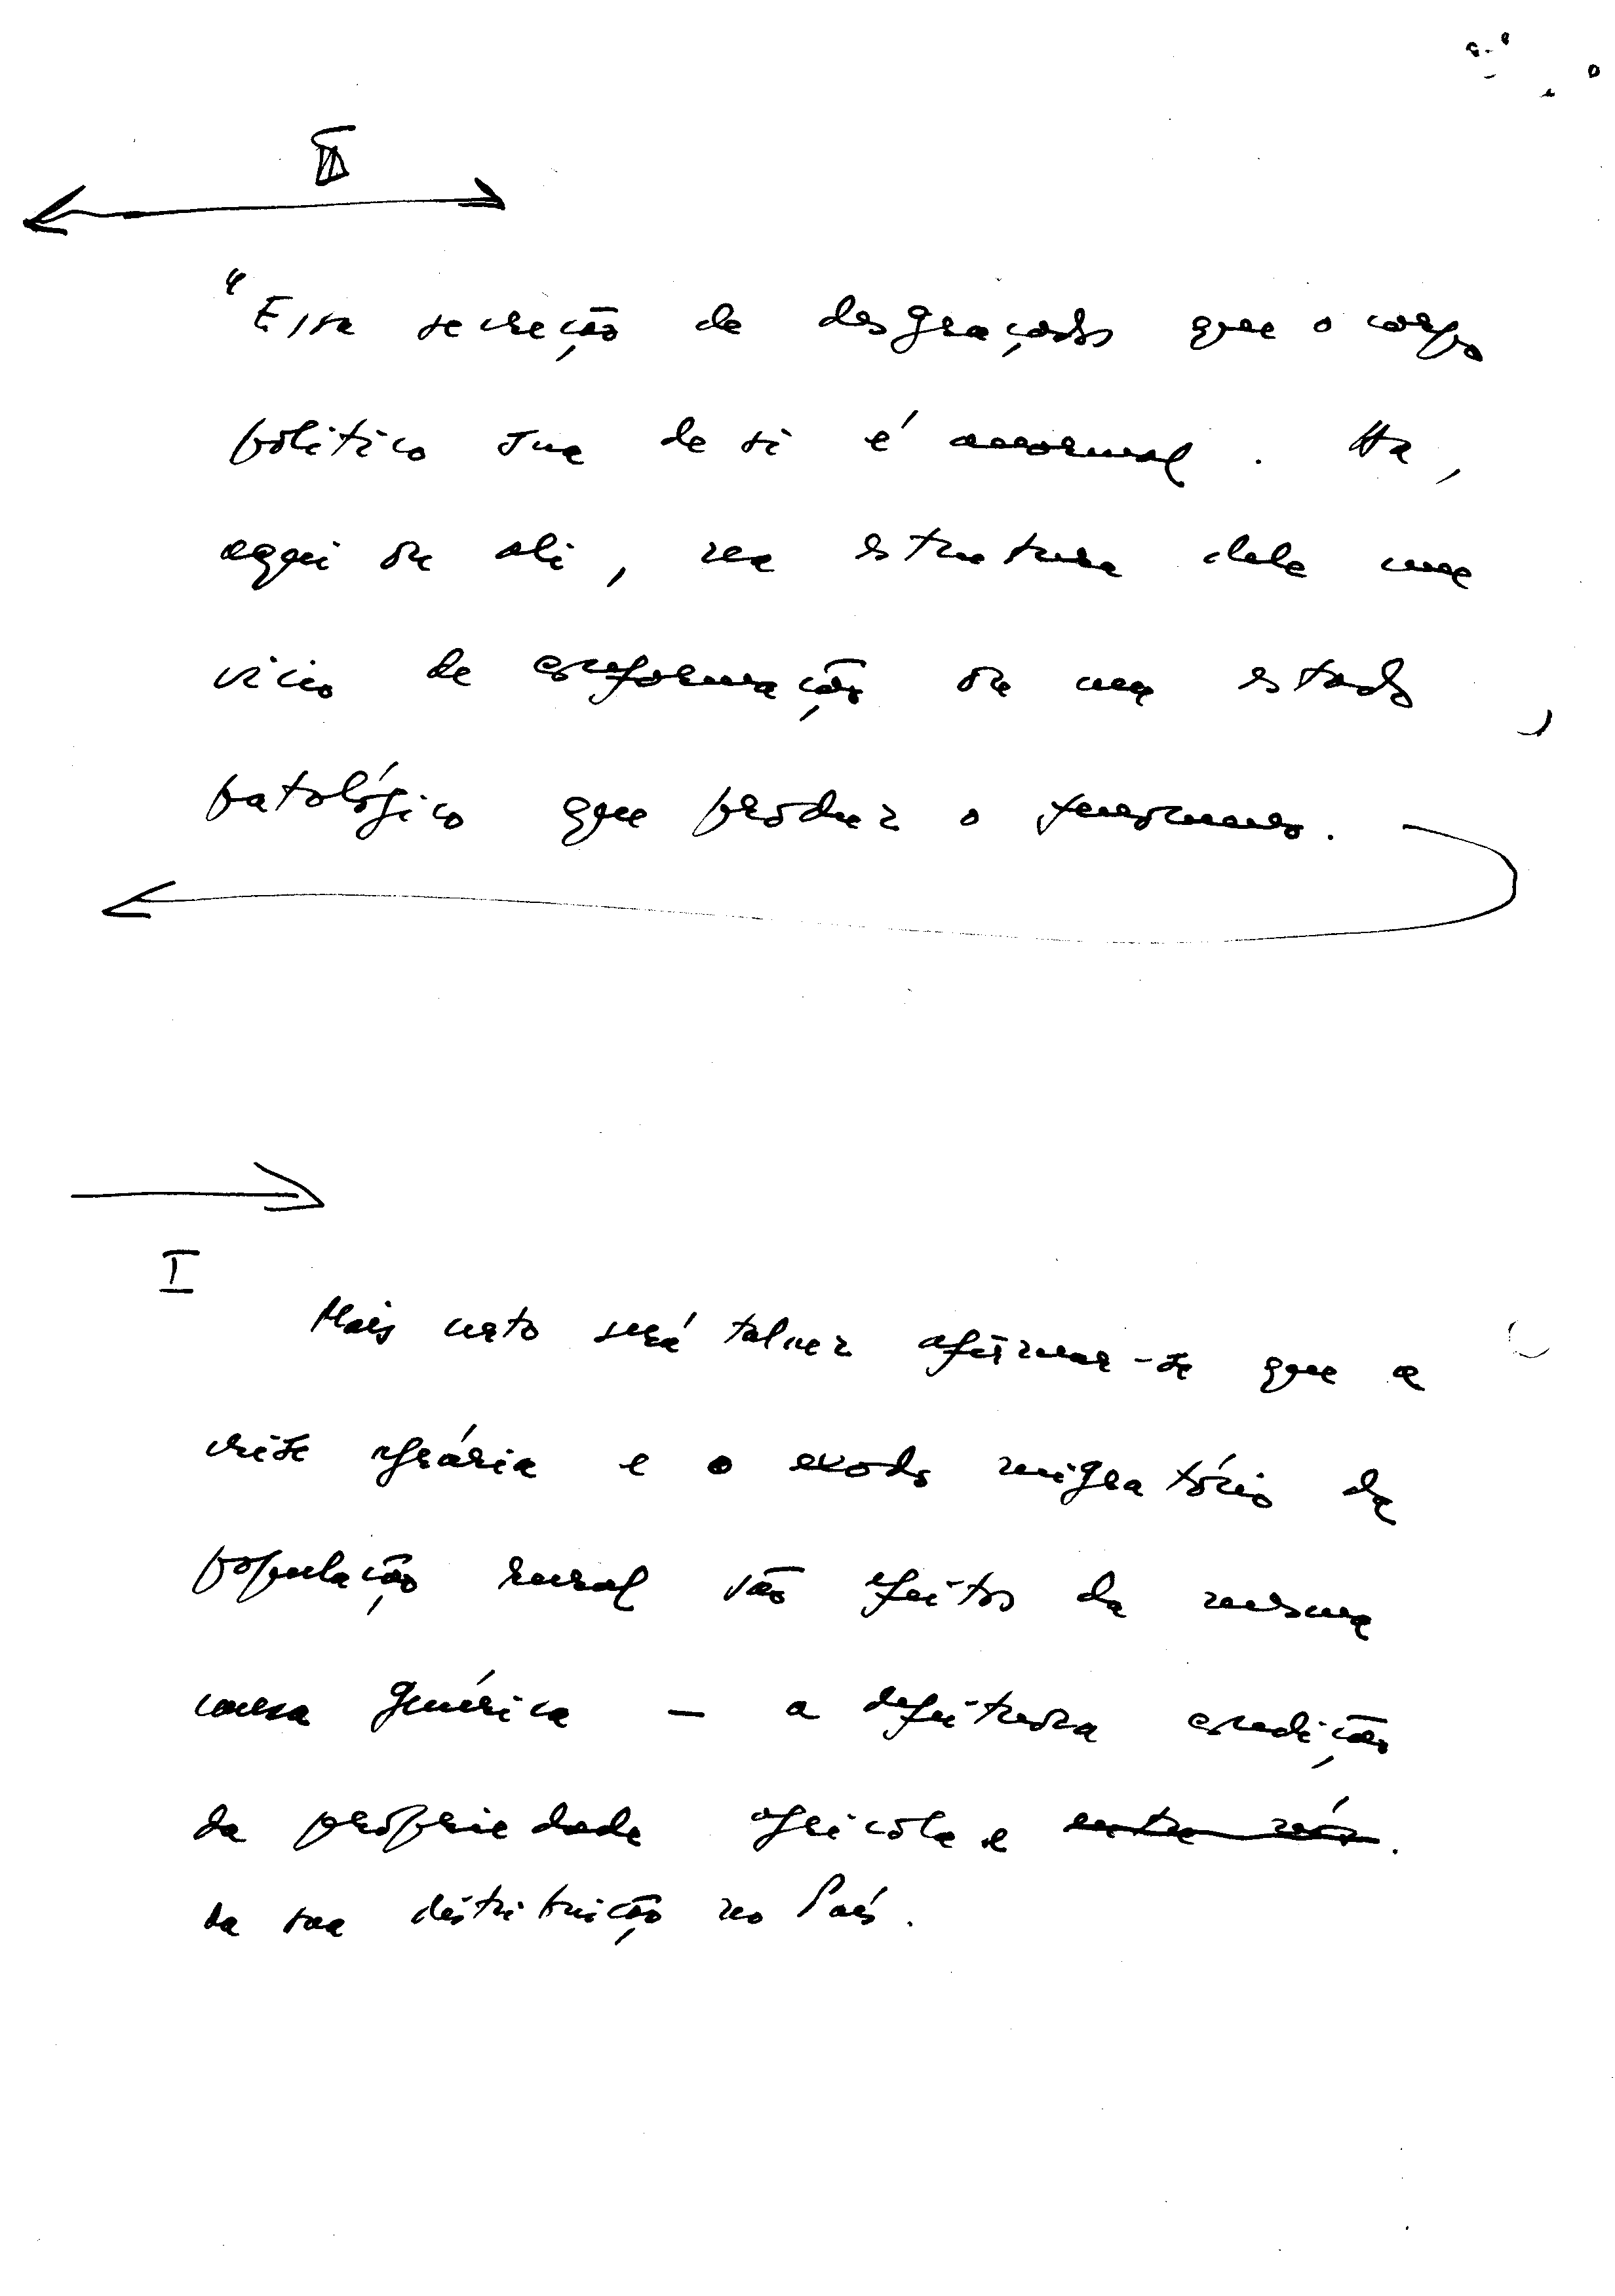 II
"Essa secreção de desgraçados que o corpo
politico sua de si é anormal. Ha,
aqui ou ali, na estrutura dele um
vicio de conformação ou um estado
patológico que produz o fenomeno.
I
Mais certo será talvez afirmar-se que a
crise agrária e o exodo migratório da
população rural são efeitos da mesma
causa genérica – a defeituosa condição
da propriedade agricola e entre nós.
da sua distribuição no País.